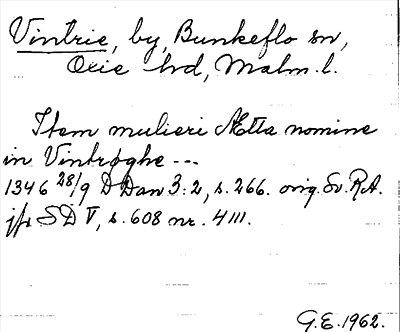 Vintrie, by, Bunkeflo sn,
Oxie hd, Malm. l.
Item mulieri Ætta nomine
in Vintrøghe ---
1346 28/9 DDan 3:2, s. 266. orig. Sv. R.A.
jfr SD V, s. 608 nr. 4111.
G.E. 1962.